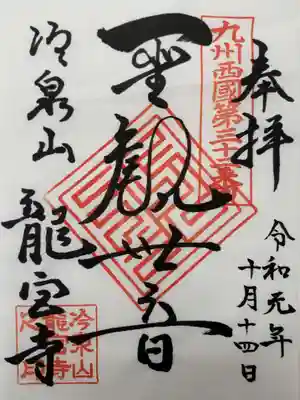 奉拝
令和元年
十月十四日
九州西國第三十三番
聖観世音
冷泉山
龍宮寺
冷泉山
龍宮寺